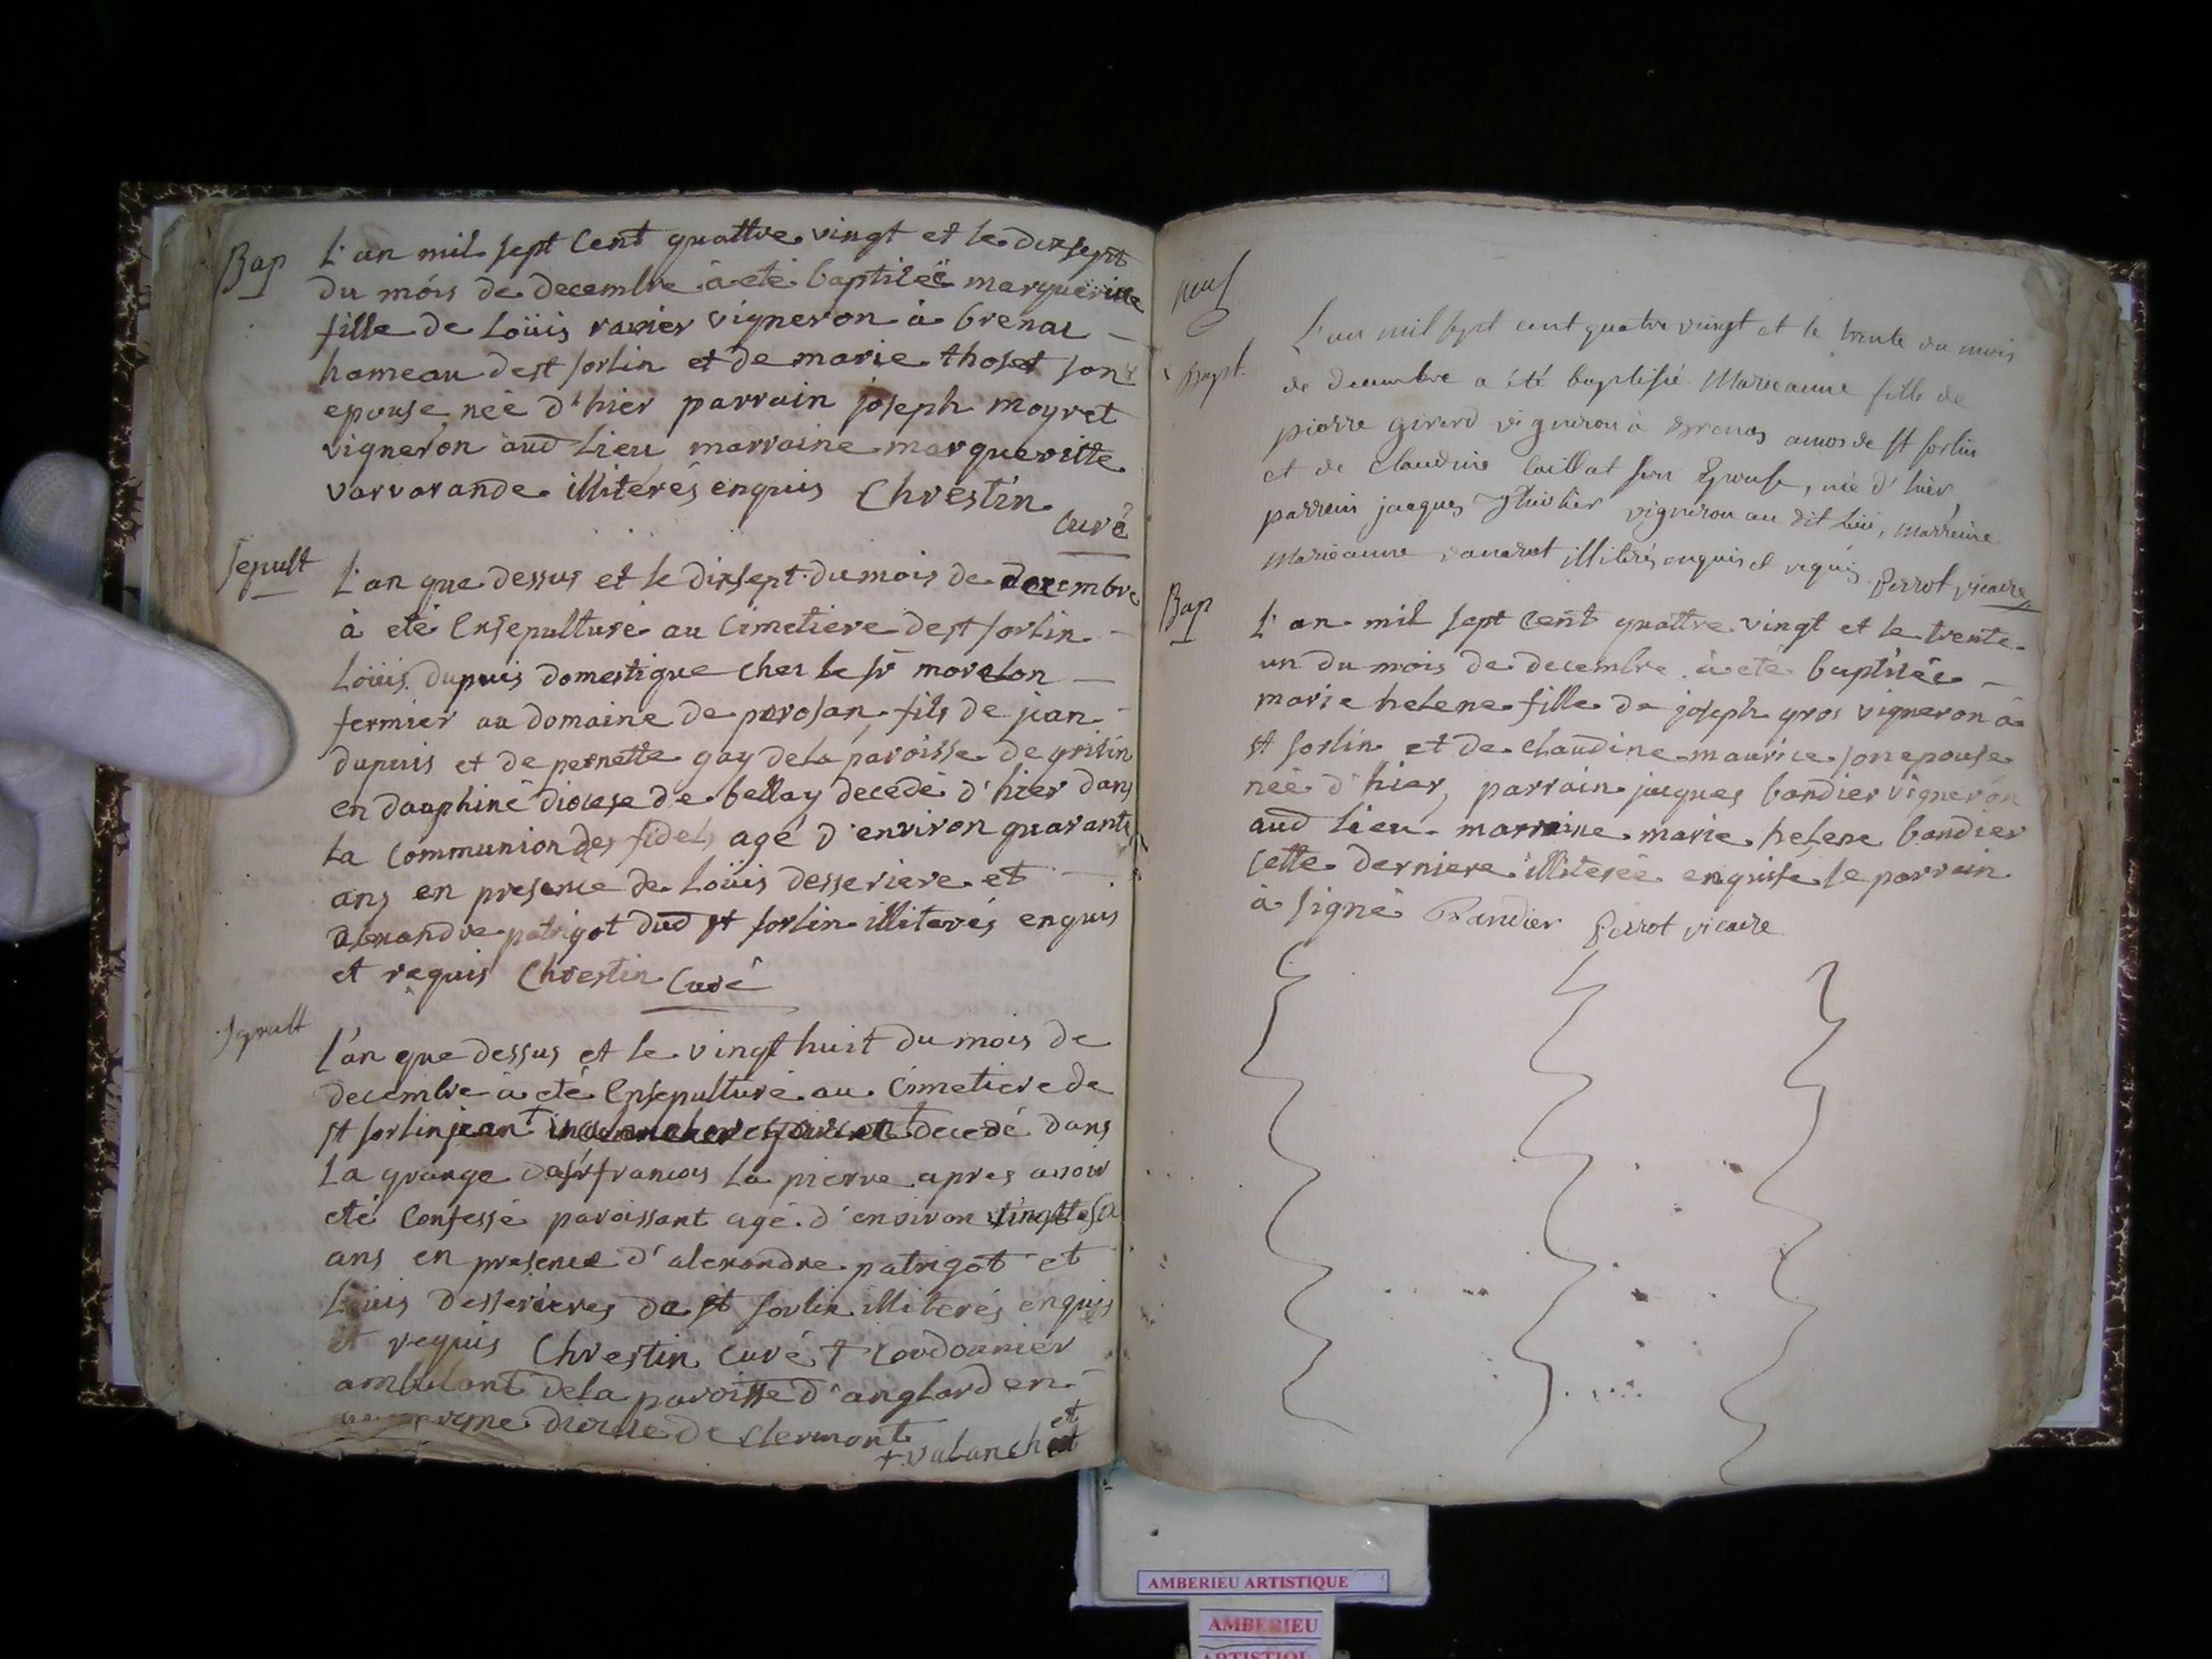 Bap
L'an mil sept Cent quattre vingt et le dix sept
du móis de decembre à eté baptiseé marguerite
fille de Loüis ravier vigneron à brenas
hameau de st sorlin et de marie thoset son
epouse neé d'hier parrain joseph moyret
vigneron aud Lieu marraine margueritte
varvarande illiterés enquis Chrestin
Curé
Sepult
L'an que dessus et le dixsept du mois de decembre
à eté Ensepulturé au Cimetiere de st sorlin
Loüis dupuis domestique cher le sr morelon
fermier au domaine de prosan fils de jean
dupuis et de pernette gay de la paroisse de grisin
en dauphiné diocese de bellay decedé d'hier dans
La Communion des fidels agé d'environ quarante
ans en presence de Loüis desseriere et
alexandre patrigot dud st sorlin illiterés enquis
et requis Chrestin Curé
Sepult
L'an que dessus et le vingt huit du mois de
decembre à eté Ensepulturé au Cimetiere de
st sorlin jean decedé dans
La grange du sr francois La pierre apres avoir
eté Confessé paroissant agé d'environ
ans en presence d'alexandre patrigot et
Loüis desserieres de st sorlin illiterés enquis
et requis Chrestin Curé † Cordonnier
ambulant de la paroisse d'anglard en
diocese de Clermont
et
+ valanchet
neuf
Bapt.
L'an mil sept cent quatre vingt et le trente du mois
de decembre a été baptisée Marieanne fille de
pierre girard vigneron à Brenas amos de st sorlin
et de Claudine Caillat son Epouse, née d'hier,
parrein jacques vigneron au dit Lieu, marreine
Marieanne illiterés enquis et requis Perrot vicaire
Bap
L'an mil sept Cent quattre vingt et le trente
un du mois de decembre à eté baptiseé
marie helene fille de joseph gros vigneron à
st sorlin et de Claudine maurice son epouse
neé d'hier, parrain jacques bandier vigneron
aud Lieu marraine marie helene bandier
cette derniere illitereé enquise le parrain
à signé Bandier Perrot vicaire
AMBERIEU ARTISTIQUE
AMBERIEU
ARTISTIQUE